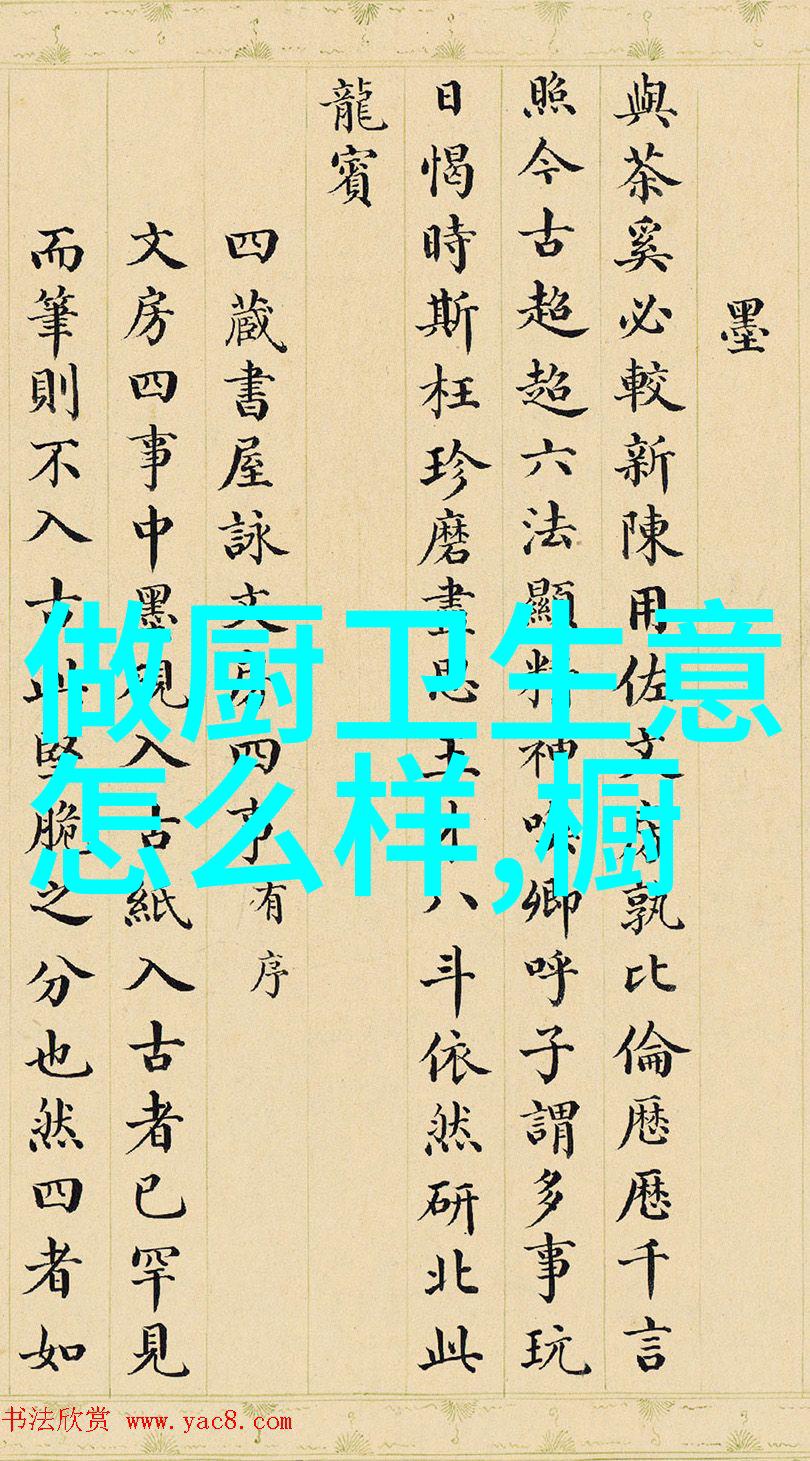 墨
與茶奚必較新陳用佐文房孰比倫歷歷千言
照今古超超六法顯精神喚卿呼子謂多事玩
日愒時斯枉珍磨畫思王才八斗依然研北此
龍賓
四藏書屋詠文房四事有序
文房四事中墨硯入古紙入古者已罕見
而筆則不入古此堅脆之分也然四者如
做厨卫生意
怎么样,橱
书法欣赏 www.yac8.com